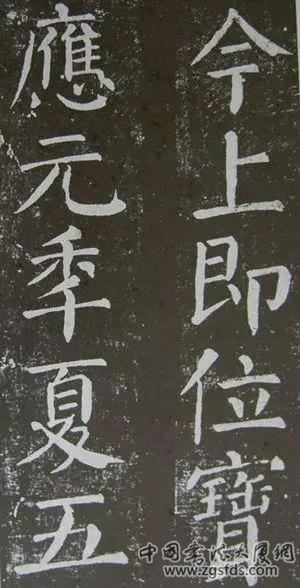 今上即位寶
應元年夏五
中国书法大厦网
www.zgsfds.com